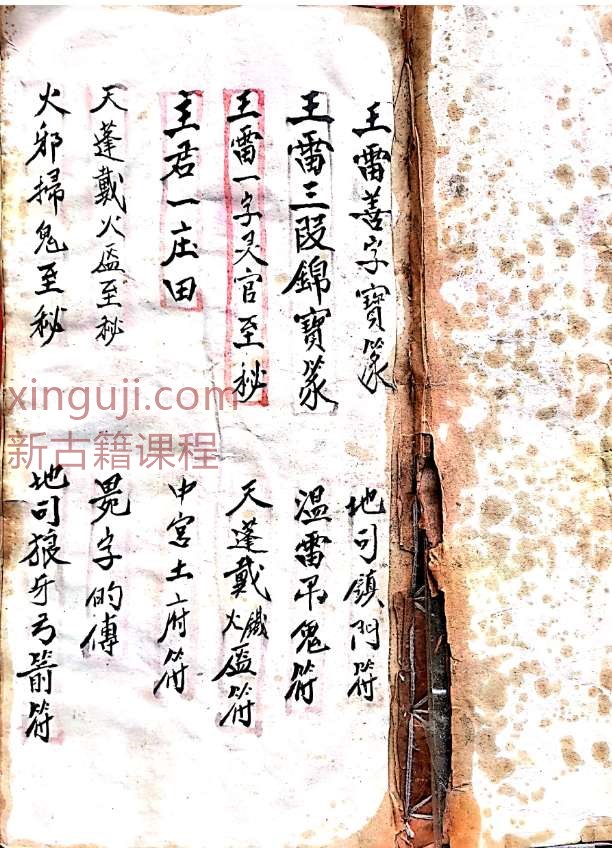 王雷善字寶篆
王雷三段錦寶篆
王雷一字灵官至秘
主君一庄田
天蓬戴火盔至秘
火邪掃鬼至秘
地司鎮門符
溫雷吊鬼符
天蓬戴火鐵盔符
中宮土府符
字的傳
地司狼牙弓箭符
xinguji.com
新古籍课程